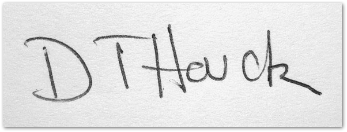 D T Houck